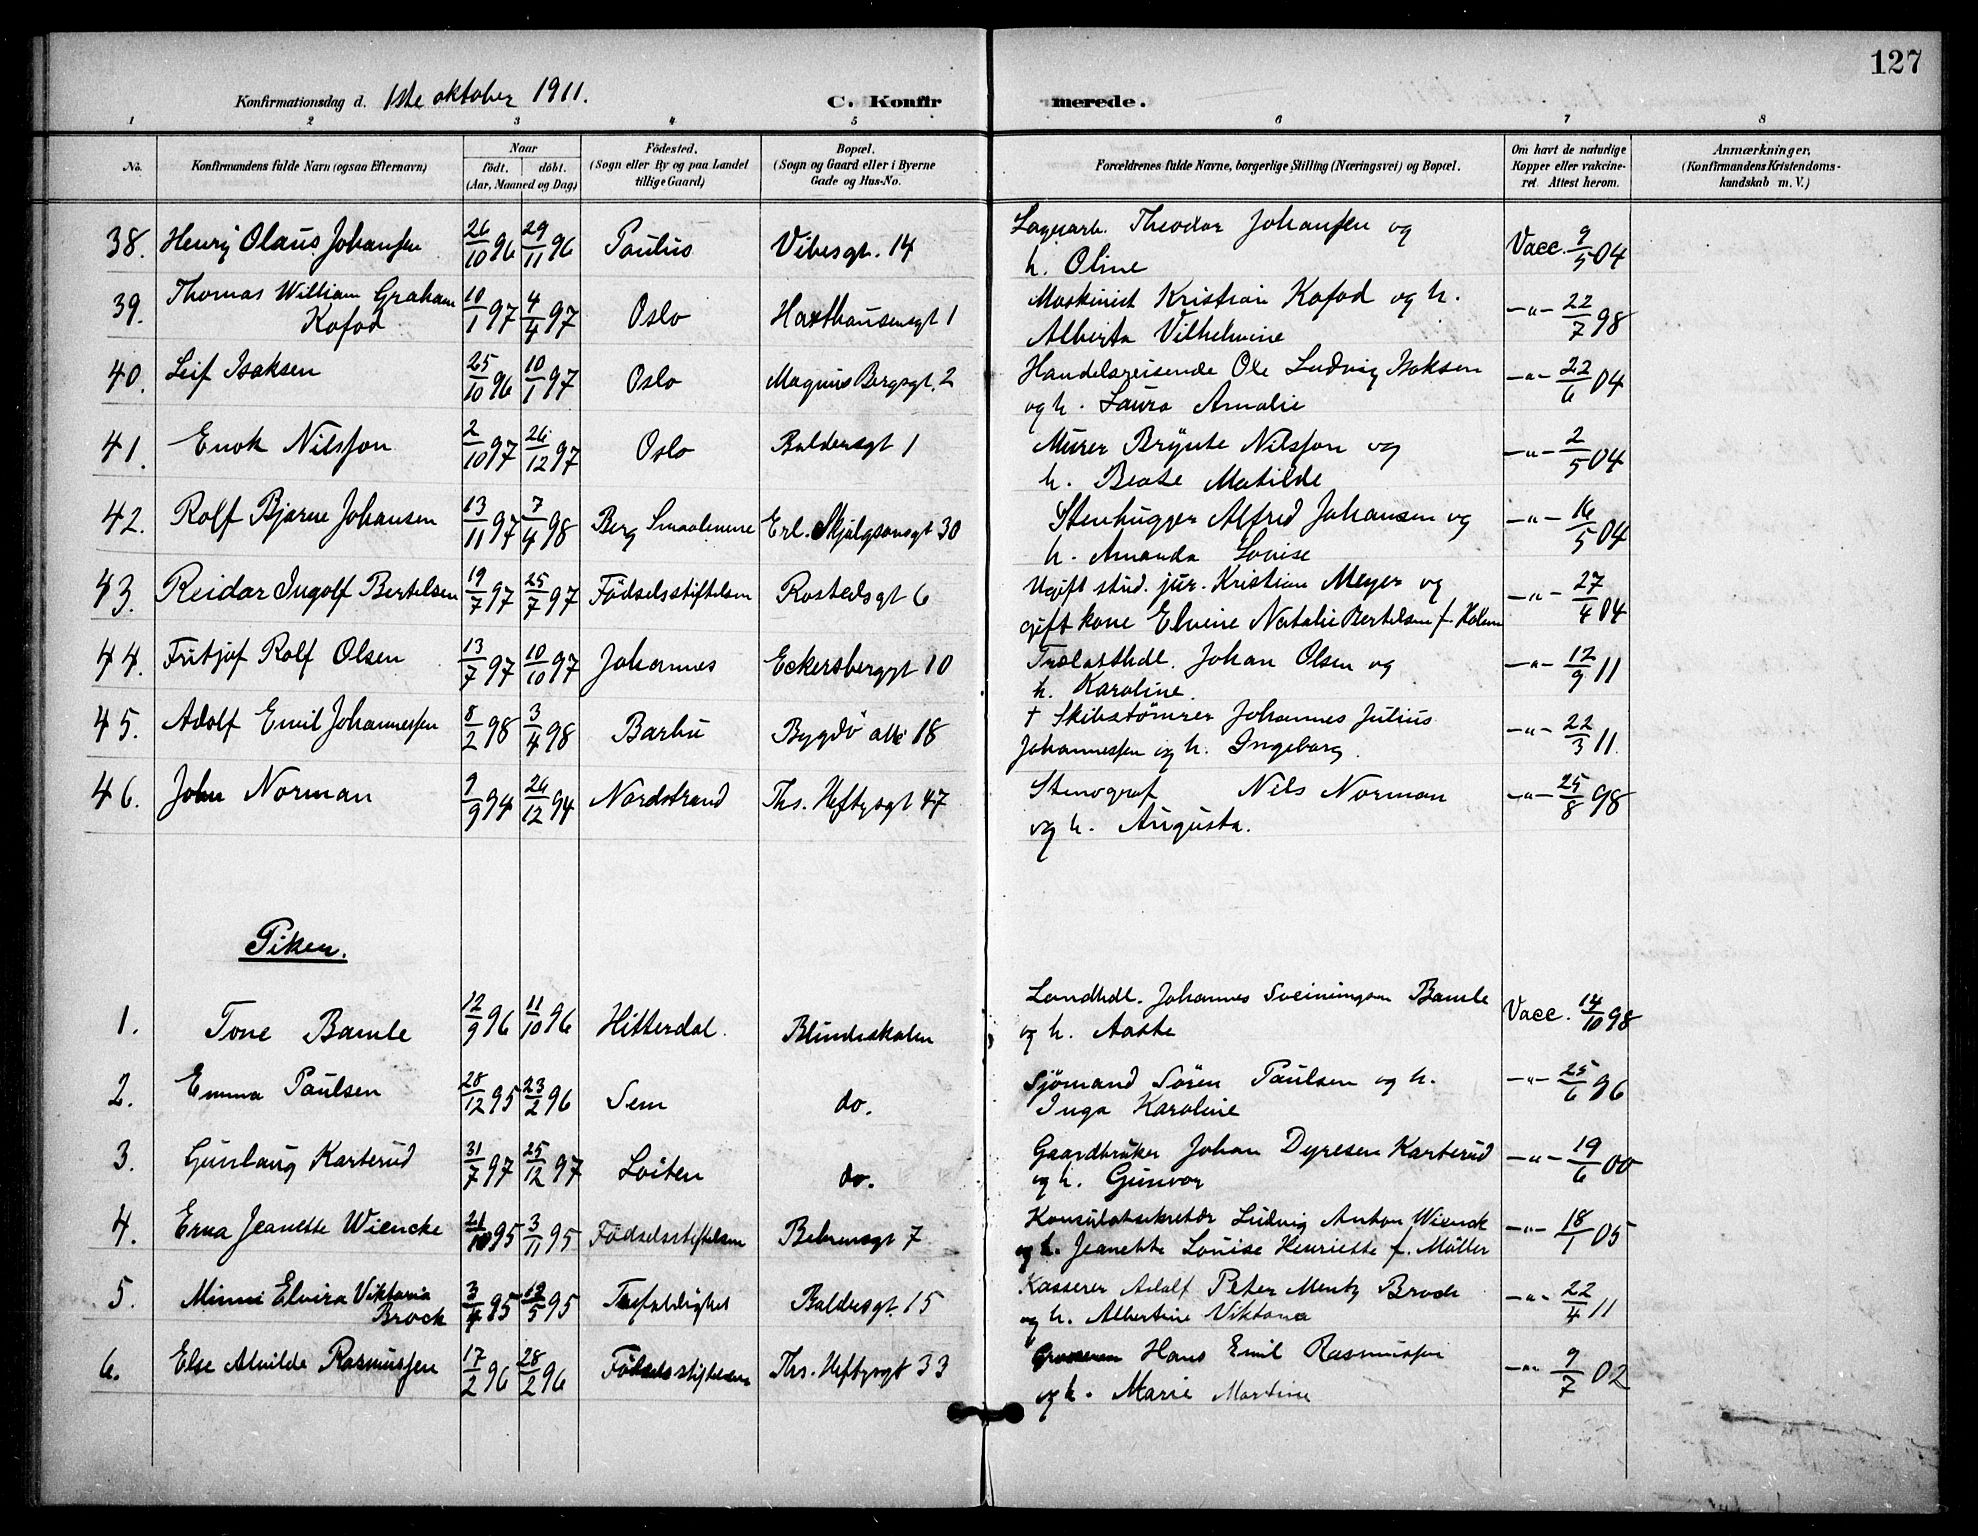 127
Konfirmationsdag d. 1ste oktober 1911. C. Konfirmerede.
1 2 3 4 5 6 7 8
No. Konfirmandens fulde Navn (ogsaa Efternavn) Naar født. døbt. (Aar, Maaned og Dag) Födested. (Sogn eller By og paa Landet tillige Gaard) Bopæl. (Sogn og Gaard eller i Byerne Gade og Hus-No. Forældrenes fulde Navne, borgerlige Stilling (Næringsvei) og Bopæl. Om havt de naturlige Kopper eller vakcineret. Attest herom. Anmærkninger, (Konfirmandens Kristendomskundskab m. V.)
38. Henry Olaus Johansen 26/10 96 29/11 96 Paulus Vibesgt. 14 Lagerarb. Theodor Johansen og
h. Oline Vacc. 9/5 04
39. Thomas William Graham
Kofod 10/1 97 4/4 97 Oslo Haxthausensgt 1 Maskinist Kristian Kofod og h.
Alberta Vilhelmine -"- 22/7 98
40. Leif Isaksen 25/10 96 10/1 97 Oslo Magnus Bergsgt. 2 Handelsreisende Ole Ludvig Isaksen
og h. Laura Amalie -"- 22/6 04
41. Enok Nilsson 2/10 97 26/12 97 Oslo Baldersgt 1 Murer Brynte Nilsson og
h. Beate Matilde -"- 2/5 04
42. Rolf Bjarne Johansen 13/11 97 7/4 98 Berg Smaalenene Erl. Skjalgsonsgt 30 Stenhugger Alfred Johansen og
h. Amanda Lovise -"- 16/5 04
43. Reidar Ingolf Bertelsen 19/7 97 25/7 97 Födselsstiftelsen Rostedsgt 6 Ugift stud. jur. Kristian Meyer og
gift kone Elvine Natalie Bertelsen f. Holm -"- 27/4 04
44. Fritjof Rolf Olsen 13/7 97 10/10 97 Johannes Eckersberggt 10 Trælasthdl. Johan Olsen og
h. Karoline. -"- 12/9 11
45. Adolf Emil Johannessen 8/2 98 3/4 98 Barbu Bygdö allé 18 † Skibstömrer Johannes Julius
Johannessen og h. Ingeborg. -"- 22/3 11.
46. John Norman 9/9 94 26/12 94 Nordstrand Ths. Heftysgt 47 Stenograf Nils Norman
og h. Augusta. -"- 25/8 98
Piker.
1. Tone Bamle 12/9 96 11/10 96 Hitterdal. Blindeskolen Landhdl. Johannes Sveiningsen Bamle
og h. Aaste Vacc. 14/10 98
2. Emma Paulsen 28/12 95 23/2 96 Sem do. Sjömand Sören Paulsen og h.
Inga Karoline -"- 25/6 96
3. Gunlaug Karterud 31/7 97 25/12 97 Löiten do. Gaardbruker Johan Dyresen Karterud
og h. Gunvor -"- 19/6 00
4. Erna Jeanette Wiencke 21/10 95 3/11 95 Födselsstiftelsen Behrensgt 7 Konsulatsekretær Ludvig Anton Wienck
og h. Jeanette Louise Henriette f. Möller -"- 18/1 05
5. Minni Elvira Viktoria
Brock 3/4 95 12/5 95 Trefoldighet Baldersgt 15 Kasserer Adolf Peter Mentz Brock
og h. Albertine Viktoria -"- 22/4 11
6. Else Alvilde Rasmussen 17/2 96 28/2 96 Födselsstiftelsen Ths. Heftysgt 33 Hans Emil Rasmussen
og h. Marie Martine -"- 9/7 02